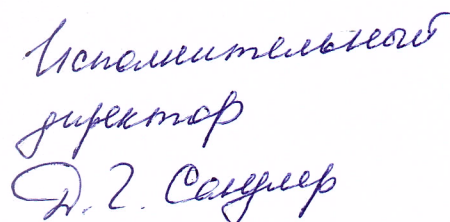 Исполнительный
директор
Д. Г. Сандлер